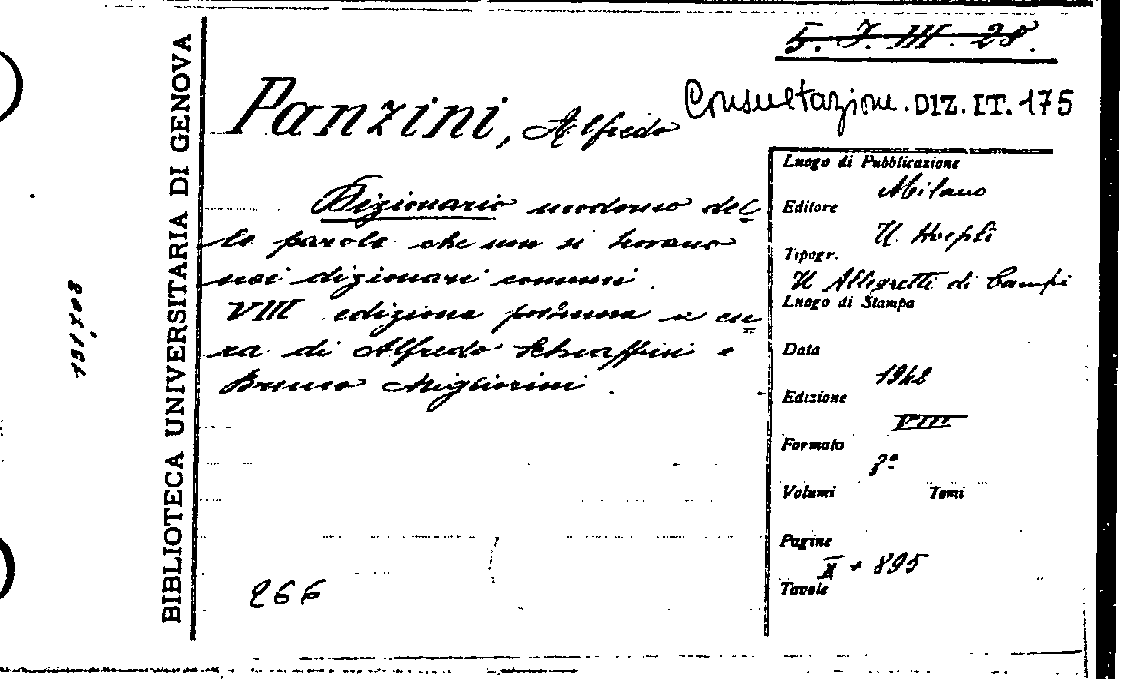 5. I. III. 28.
Consultazione. DIZ. IT. 175
Panzini, Alfredo
Dizionario moderno del
le parole che non si trovano
nei dizionari comuni.
VIII edizione postuma a cu
ra di Alfredo Schiaffini e
Bruno Migliorini.
266
BIBLIOTECA UNIVERSITARIA DI GENOVA
Luogo di Pubblicazione
Milano
Editore
U. Hoepli
Tipogr.
U Allegretti di Campi
Luogo di Stampa
Data
1942
Edizione
VIII
Formato
8º
Volumi Tomi
Pagine
X + 895
Tavole